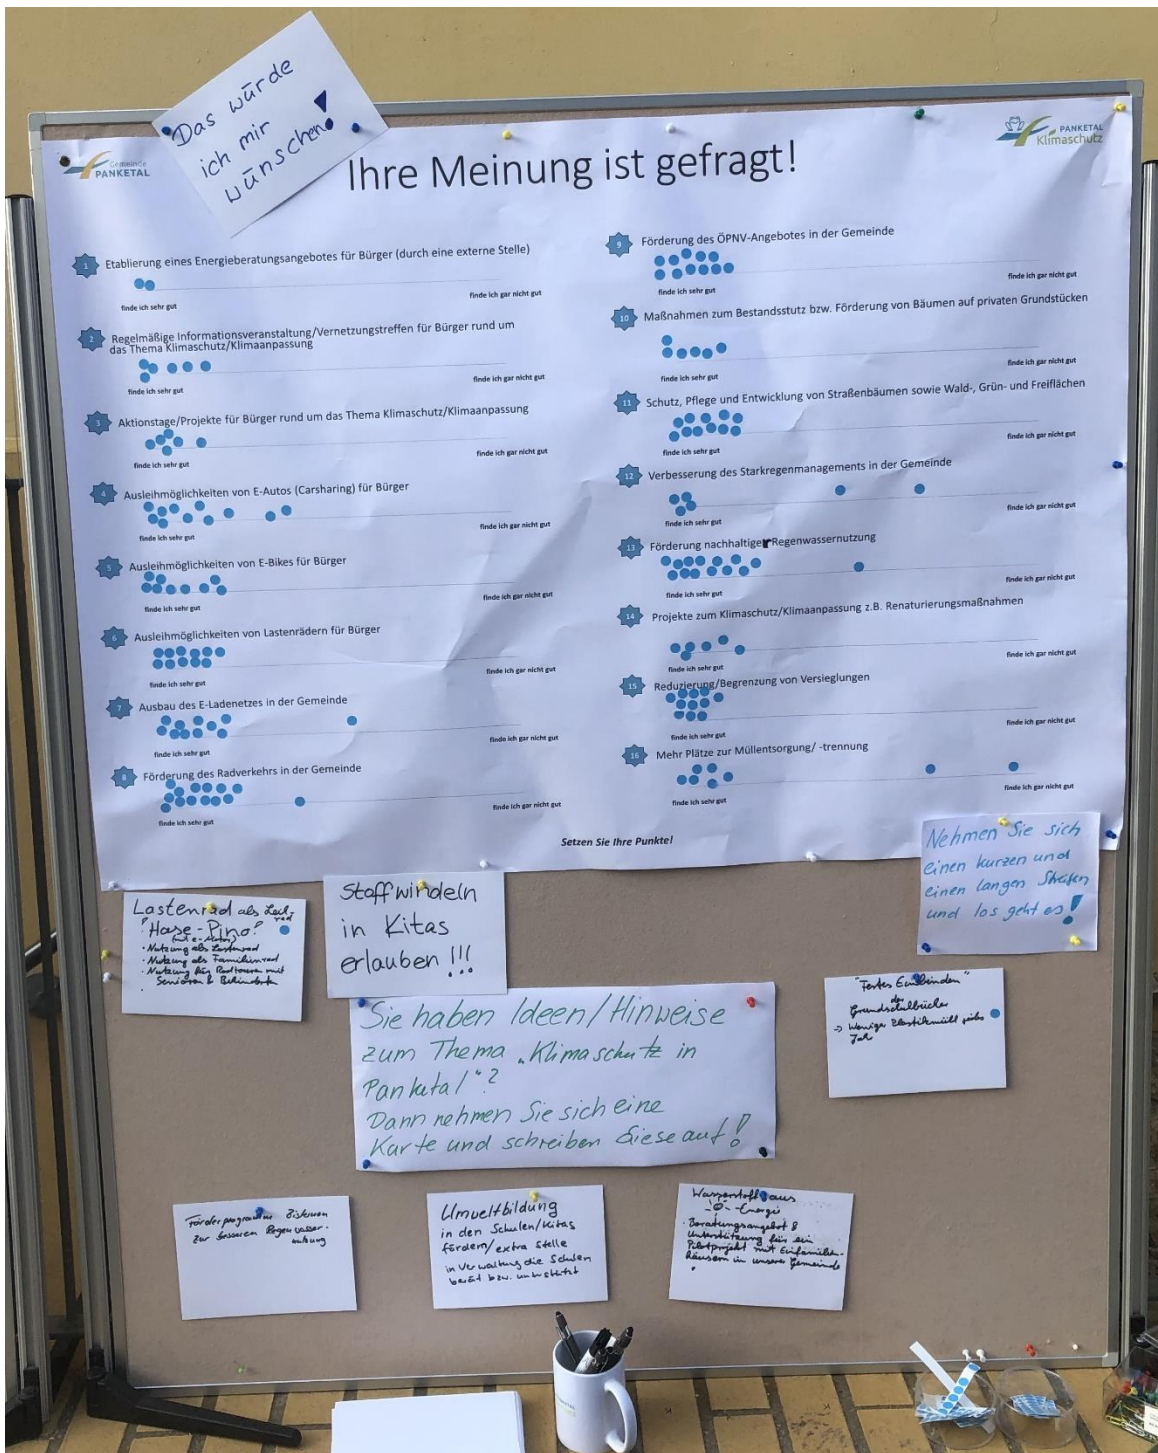 Das würde
ich mir
wünschen!
Gemeinde
PANKETAL
Ihre Meinung ist gefragt!
PANKETAL
Klimaschutz
1 Etablierung eines Energieberatungsangebotes für Bürger (durch eine externe Stelle)
finde ich sehr gut finde ich gar nicht gut
2 Regelmäßige Informationsveranstaltung/Vernetzungstreffen für Bürger rund um
das Thema Klimaschutz/Klimaanpassung
finde ich sehr gut finde ich gar nicht gut
3 Aktionstage/Projekte für Bürger rund um das Thema Klimaschutz/Klimaanpassung
finde ich sehr gut finde ich gar nicht gut
4 Ausleihmöglichkeiten von E-Autos (Carsharing) für Bürger
finde ich sehr gut finde ich gar nicht gut
5 Ausleihmöglichkeiten von E-Bikes für Bürger
finde ich sehr gut finde ich gar nicht gut
6 Ausleihmöglichkeiten von Lastenrädern für Bürger
finde ich sehr gut finde ich gar nicht gut
7 Ausbau des E-Ladenetzes in der Gemeinde
finde ich sehr gut finde ich gar nicht gut
8 Förderung des Radverkehrs in der Gemeinde
finde ich sehr gut finde ich gar nicht gut
9 Förderung des ÖPNV-Angebotes in der Gemeinde
finde ich sehr gut finde ich gar nicht gut
10 Maßnahmen zum Bestandsstutz bzw. Förderung von Bäumen auf privaten Grundstücken
finde ich sehr gut finde ich gar nicht gut
11 Schutz, Pflege und Entwicklung von Straßenbäumen sowie Wald-, Grün- und Freiflächen
finde ich sehr gut finde ich gar nicht gut
12 Verbesserung des Starkregenmanagements in der Gemeinde
finde ich sehr gut finde ich gar nicht gut
13 Förderung nachhaltiger Regenwassernutzung
finde ich sehr gut finde ich gar nicht gut
14 Projekte zum Klimaschutz/Klimaanpassung z.B. Renaturierungsmaßnahmen
finde ich sehr gut finde ich gar nicht gut
15 Reduzierung/Begrenzung von Versieglungen
finde ich sehr gut finde ich gar nicht gut
16 Mehr Plätze zur Müllentsorgung/ -trennung
finde ich sehr gut finde ich gar nicht gut
Setzen Sie Ihre Punkte!
Nehmen Sie sich
einen kurzen und
einen langen Streifen
und los geht es!
Lastenrad als Leih-
rad
"Hase-Pino"
· Nutzung als Lastenrad
· Nutzung als Familienrad
· Nutzung für Radtouren mit
Senioren & Behinderten
Stoffwindeln
in Kitas
erlauben!!!
Sie haben Ideen/Hinweise
zum Thema „Klimaschutz in
Panketal"?
Dann nehmen Sie sich eine
Karte und schreiben diese auf!
"Festes Einbinden"
der
Grundschulbücher
→ Weniger Plastikmüll jedes
Jahr
Förderprogramm Zisternen
zur besseren Regenwasser-
nutzung
Umweltbildung
in den Schulen/Kitas
fördern/extra Stelle
in Verwaltung die Schulen
berät bzw. unterstützt
Wasserstoff aus
-Energie
· Beratungsangebot &
Unterstützung für ein
Pilotprojekt mit Einfamilien-
häusern in unserer Gemeinde